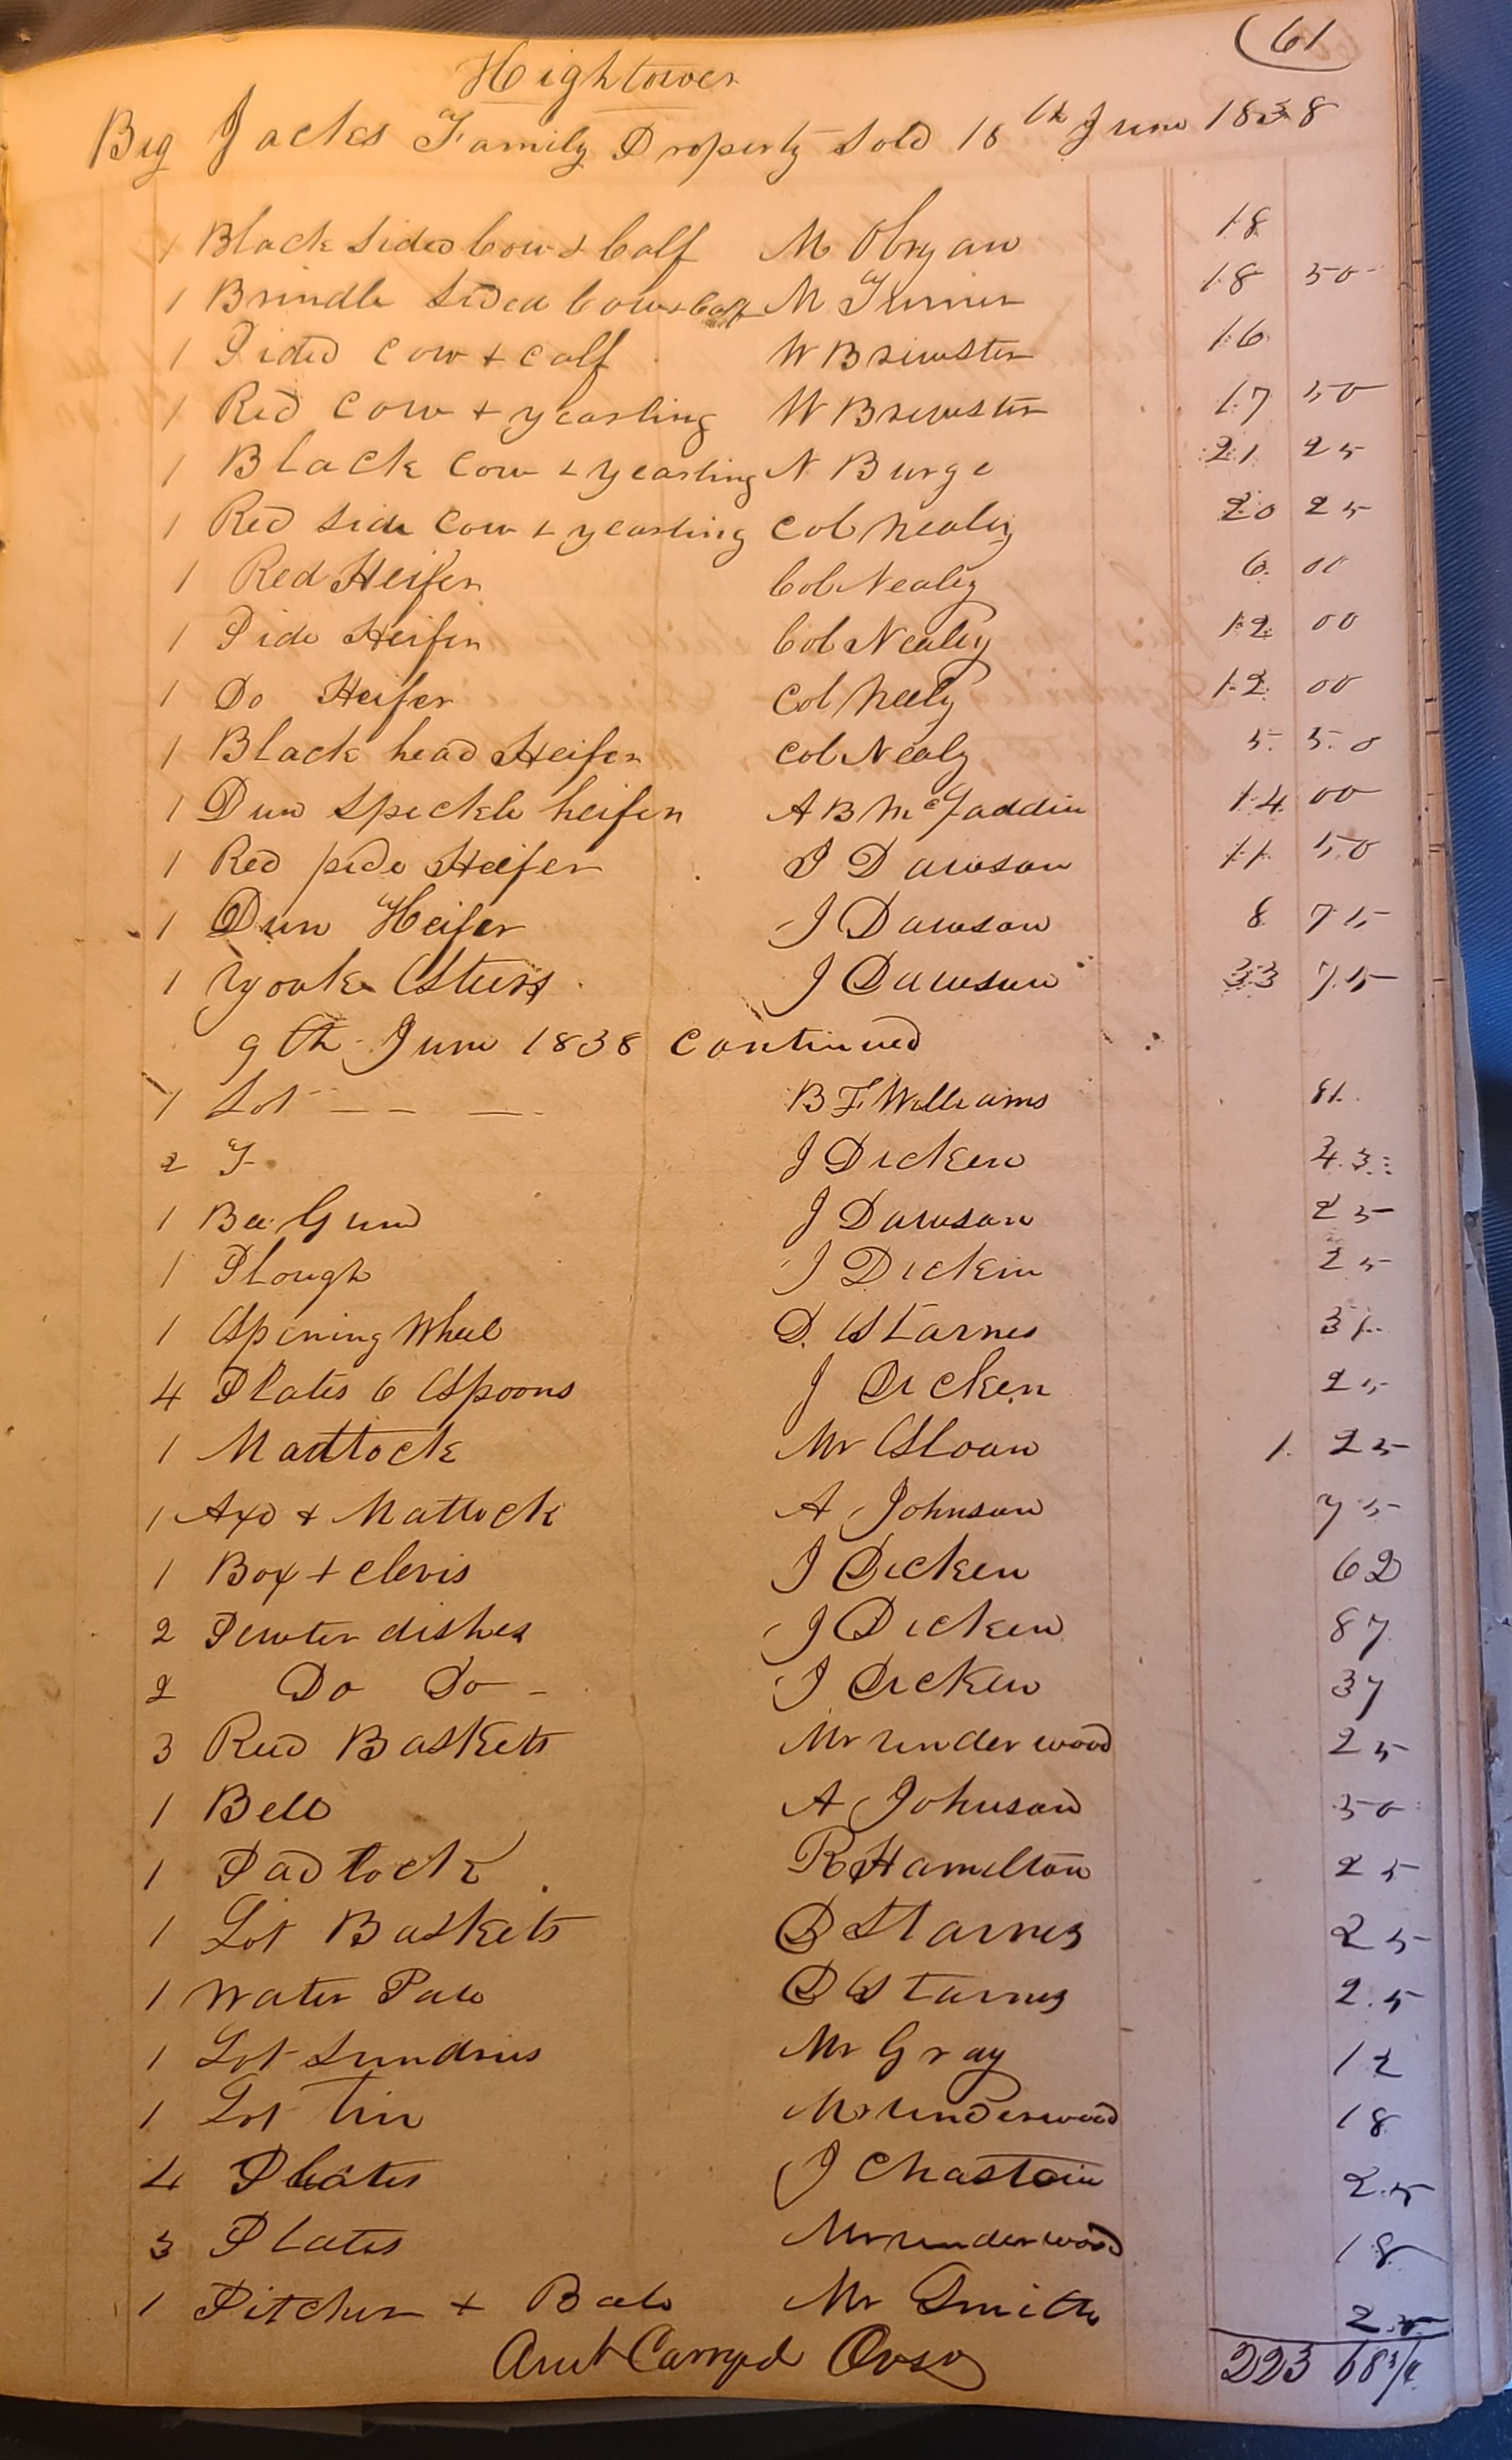 (61
Hightower
Big Jacks Family Property Sold 16th June 1838
1 Black Sided Cow & Calf M Obryan 18
1 Brindle Sided Cow & Calf M Turner 18 50
1 Pided Cow & Calf W Brewster 16
1 Red Cow & yearling W Brewster 17 50
1 Black Cow & yearling N Burge 21 25
1 Red Side Cow & yearling Col Nealey 20 25
1 Red Heifer Col Nealey 6 00
1 Pide Heifer Col Nealey 12 00
1 Do Heifer Col Neely 12 00
1 Black head Heifer Col Nealy 5 50
1 Dun Speckle heifer A B McFaddin 14 00
1 Red pide Heifer J Dawson 11 50
1 Dun Heifer J Dawson 8 75
1 Yoake Steers J Dawson 33 75
9th June 1838 Continued
1 Lot B F Williams 81
2 J Dicken 43
1 Bee Gum J Dawson 25
1 Plough J Dickin 25
1 Spining Wheel D. Starnes 31
4 Plates 6 Spoons J Dicken 25
1 Mattock Mr Sloan 1 25
1 Axe & Mattock A Johnson 75
1 Box & clevis J Dicken 62
2 Pewter dishes J Dicken 87
2 Do Do J Dicken 37
3 Reed Baskets Mr Underwood 25
1 Bell A Johnson 50
1 Padlock R Hamilton 25
1 Lot Baskets D Starnes 25
1 Water Pale D Starnes 25
1 Lot Sundries Mr Gray 12
1 Lot Tin Mr Underwood 18
4 Plates J Chastain 25
3 Plates Mr Underwood 18
1 Pitcher & Mr Smith 25
Amt Carryed Over 223 68 3/4